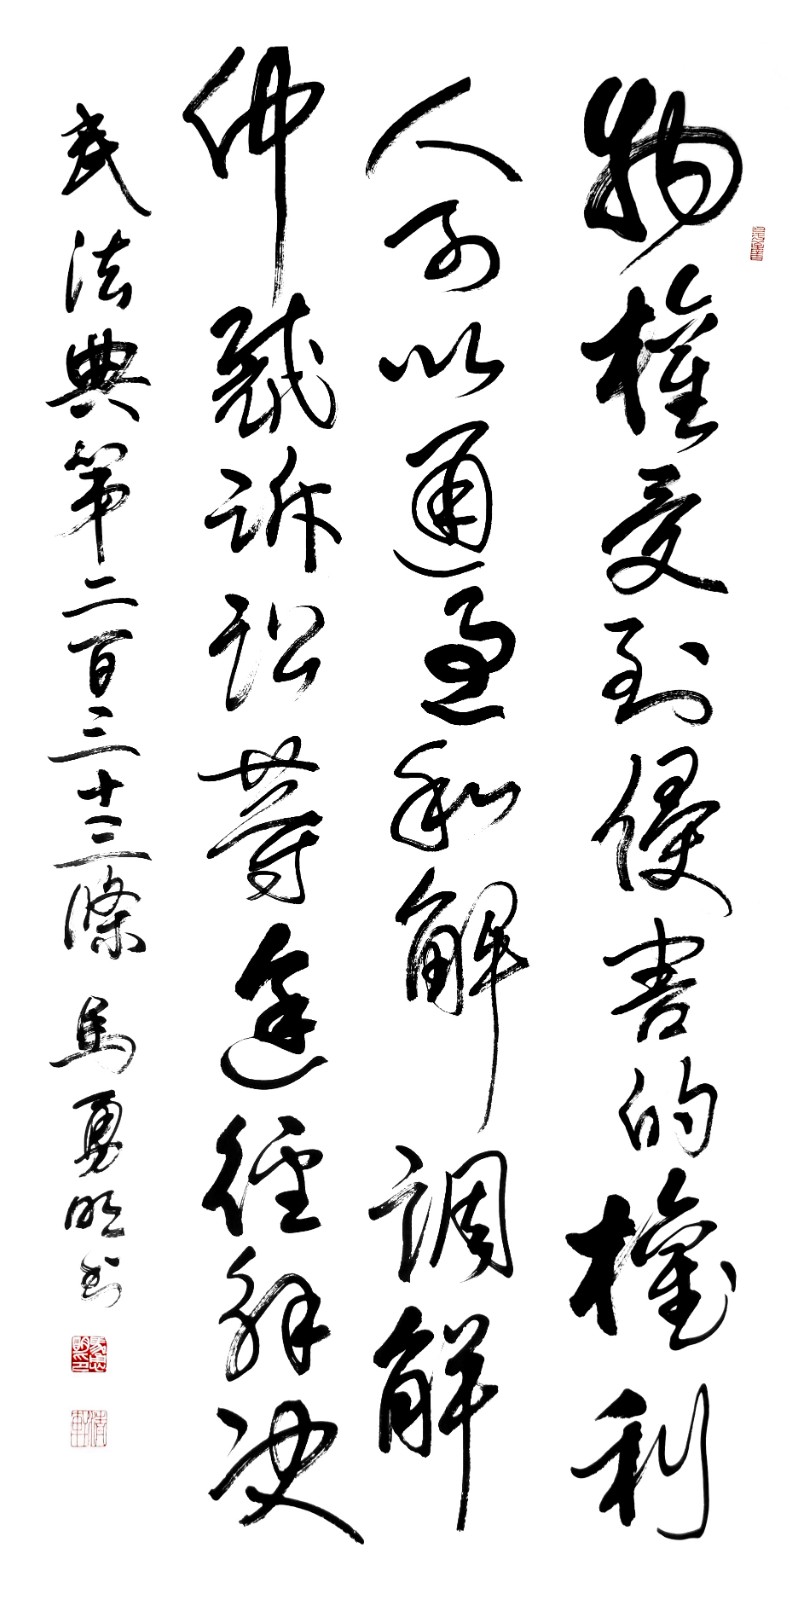 物權受到侵害的權利
人可以通過和解調解
仲裁訴訟等途徑解決
民法典第二百三十三條 馬勇明书